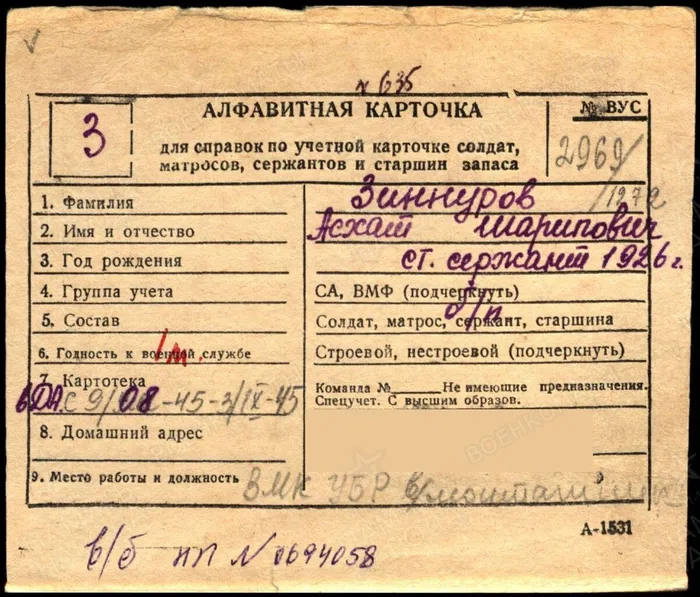 х 635
АЛФАВИТНАЯ КАРТОЧКА
№ ВУС
З
для справок по учетной карточке солдат,
матросов, сержантов и старшин запаса
2969/
/1272
1. Фамилия Зиннуров
2. Имя и отчество Асхат Шарипович
3. Год рождения ст. сержант 1926 г.
4. Группа учета СА, ВМФ (подчеркнуть)
б/п
5. Состав Солдат, матрос, сержант, старшина
6. Годность к военной службе Строевой, нестроевой (подчеркнуть)
7. Картотека Команда №______ Не имеющие предназначения.
Спецучет. С высшим образов.
с 9/08-45-3/IX-45
8. Домашний адрес
9. Место работы и должность ВМК УБР
А-1531
в/б НП N 0694058